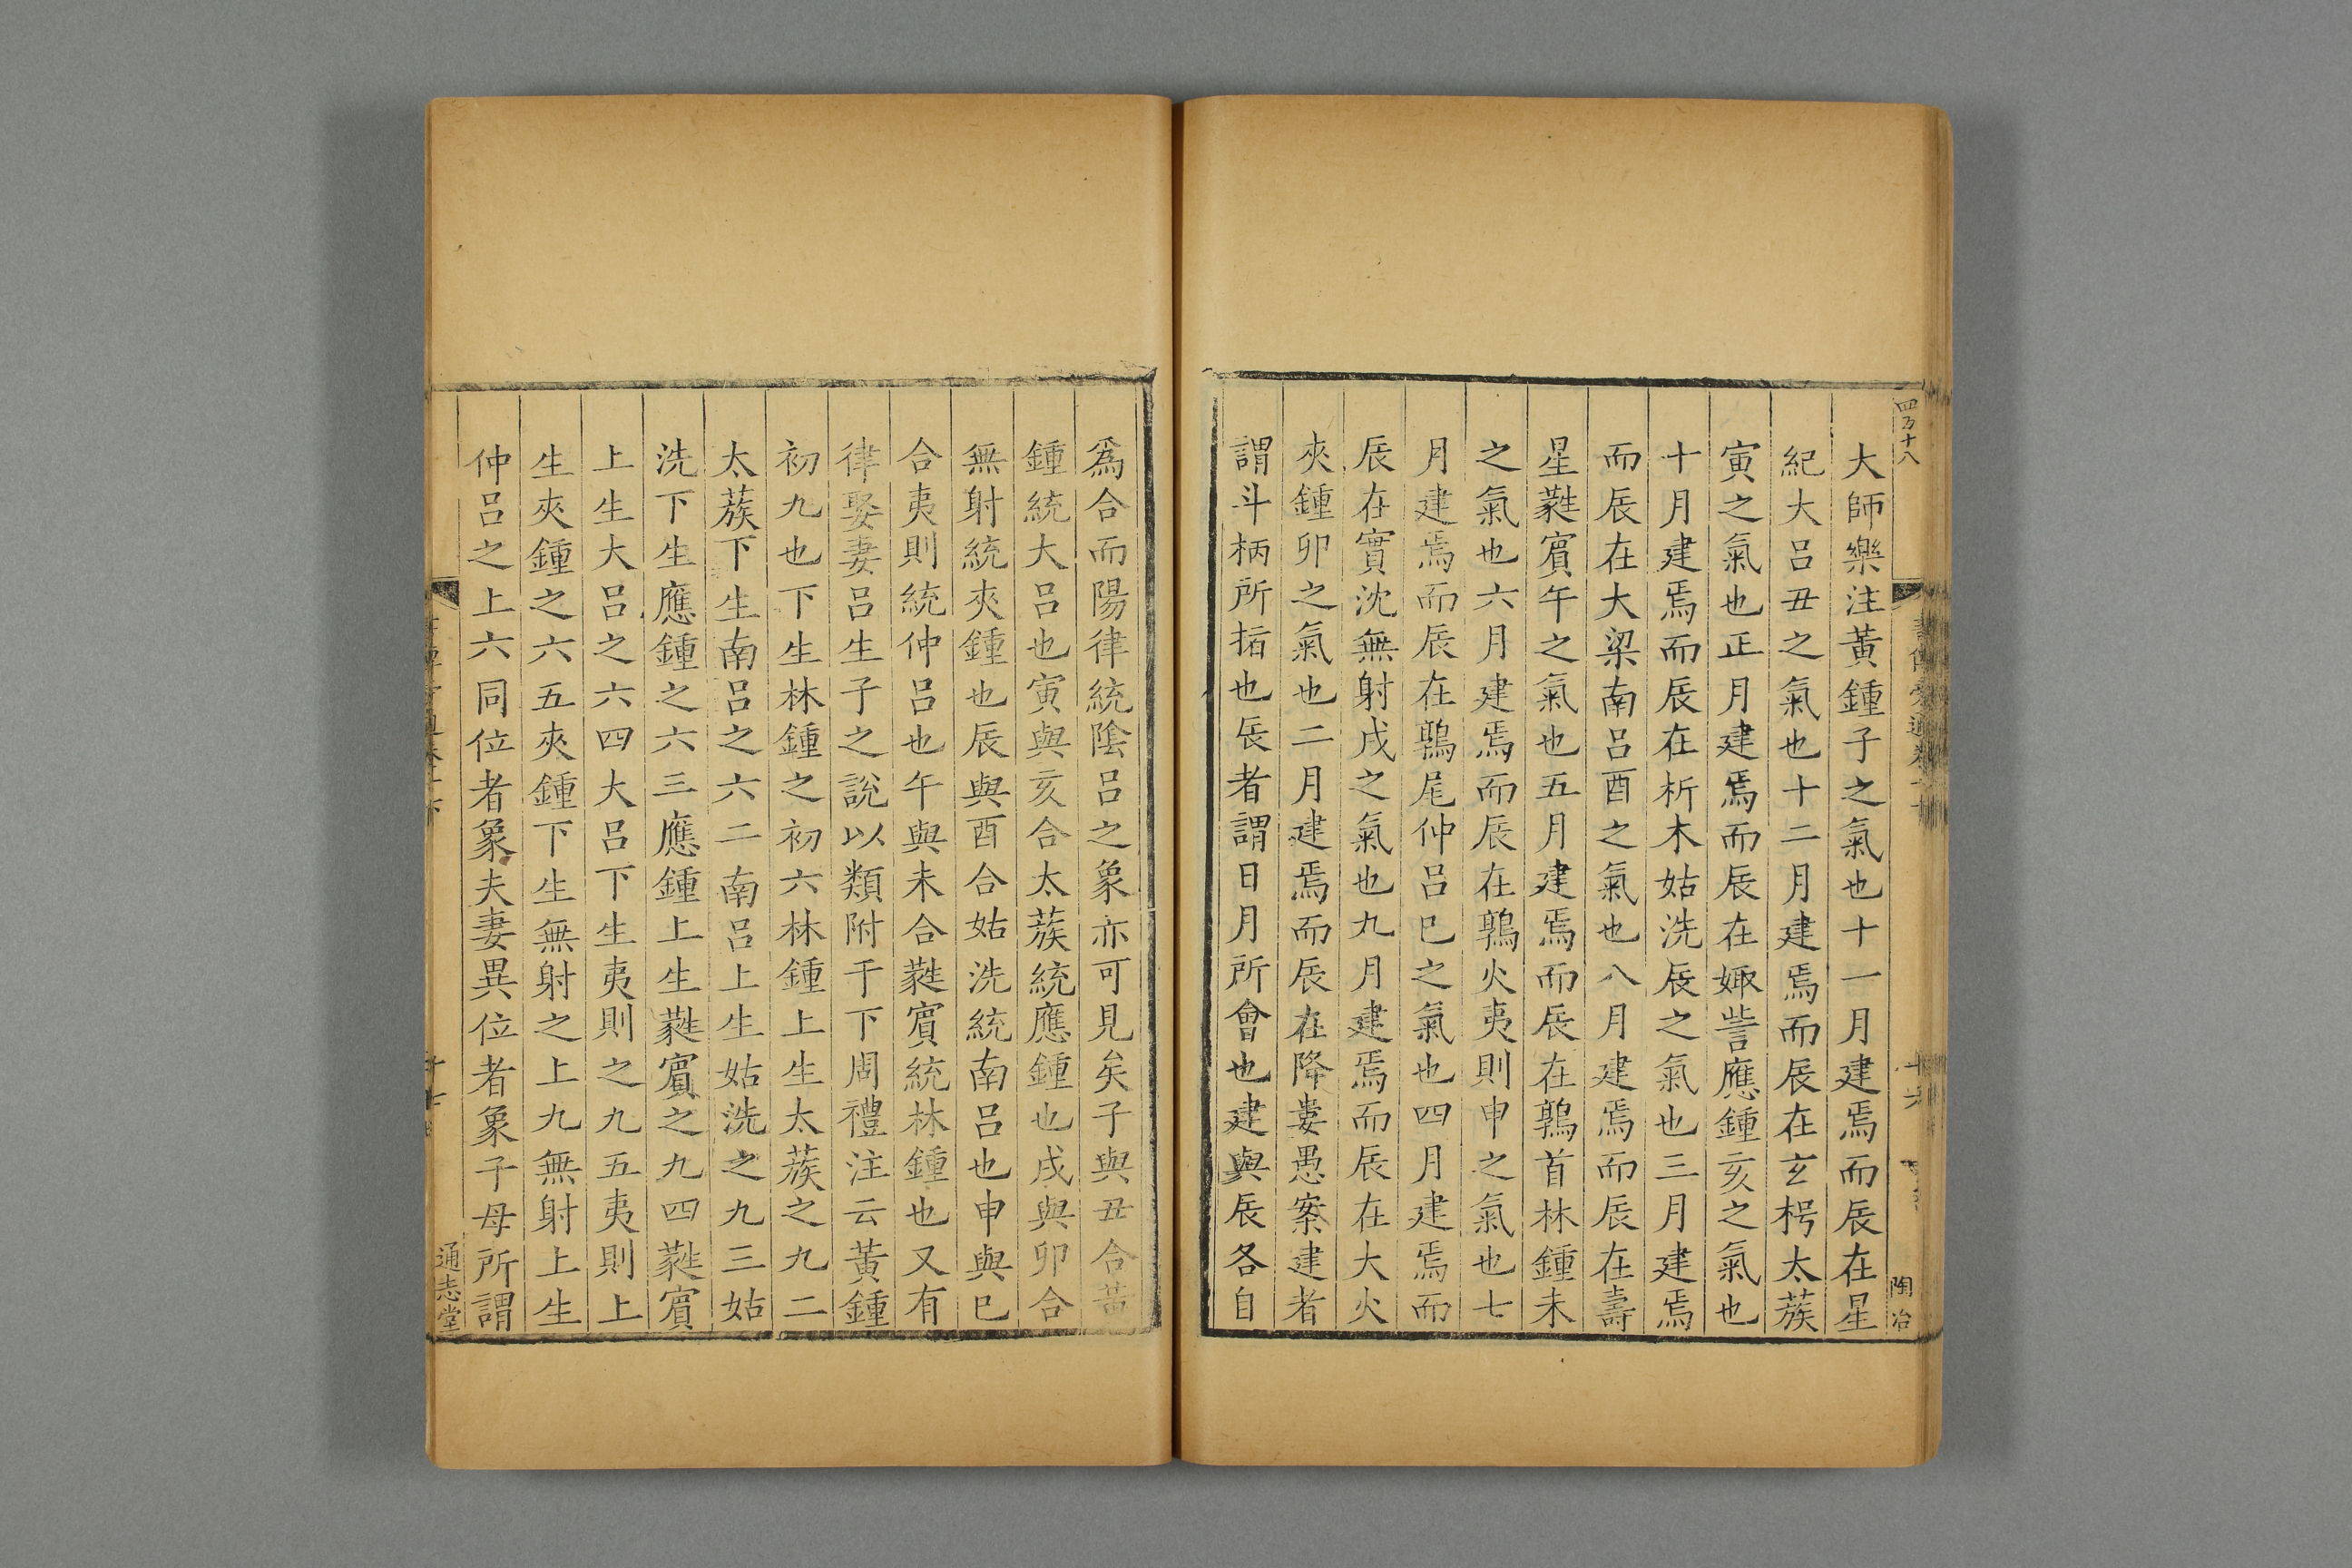 大師樂注黃鍾子之氣也十一月建焉而辰在星
紀大呂丑之氣也十二月建焉而辰在玄枵太蔟
寅之氣也正月建焉而辰在娵訾應鍾亥之氣也
十月建焉而辰在析木姑洗辰之氣也三月建焉
而辰在大梁南呂酉之氣也八月建焉而辰在壽
星蕤賔午之氣也五月建焉而辰在鶉首林鍾未
之氣也六月建焉而辰在鶉火夷則申之氣也七
月建焉而辰在鶉尾仲呂巳之氣也四月建焉而
辰在實沈無射戌之氣也九月建焉而辰在大火
夾鍾卯之氣也二月建焉而辰在降婁愚案建者
謂斗柄所指也辰者謂日月所會也建與辰各自
陶冶
爲合而陽律統陰呂之象亦可見矣子與丑合黃
鍾統大呂也寅與亥合太蔟統應鍾也戌與卯合
無射統夾鍾也辰與酉合姑洗統南呂也申與巳
合夷則統仲呂也午與未合蕤賔統林鍾也又有
律娶妻呂生子之說以類附于下周禮注云黃鍾
初九也下生林鍾之初六林鍾上生太蔟之九二
太蔟下生南呂之六二南呂上生姑洗之九三姑
洗下生應鍾之六三應鍾上生蕤賔之九四蕤賔
上生大呂之六四大呂下生夷則之九五夷則上
生夾鍾之六五夾鍾下生無射之上九無射上生
仲呂之上六同位者象夫妻異位者象子母所謂
通志堂